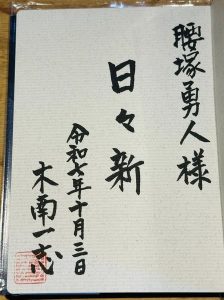 腰塚勇人様
日々新
令和七年十月三日
木南一志